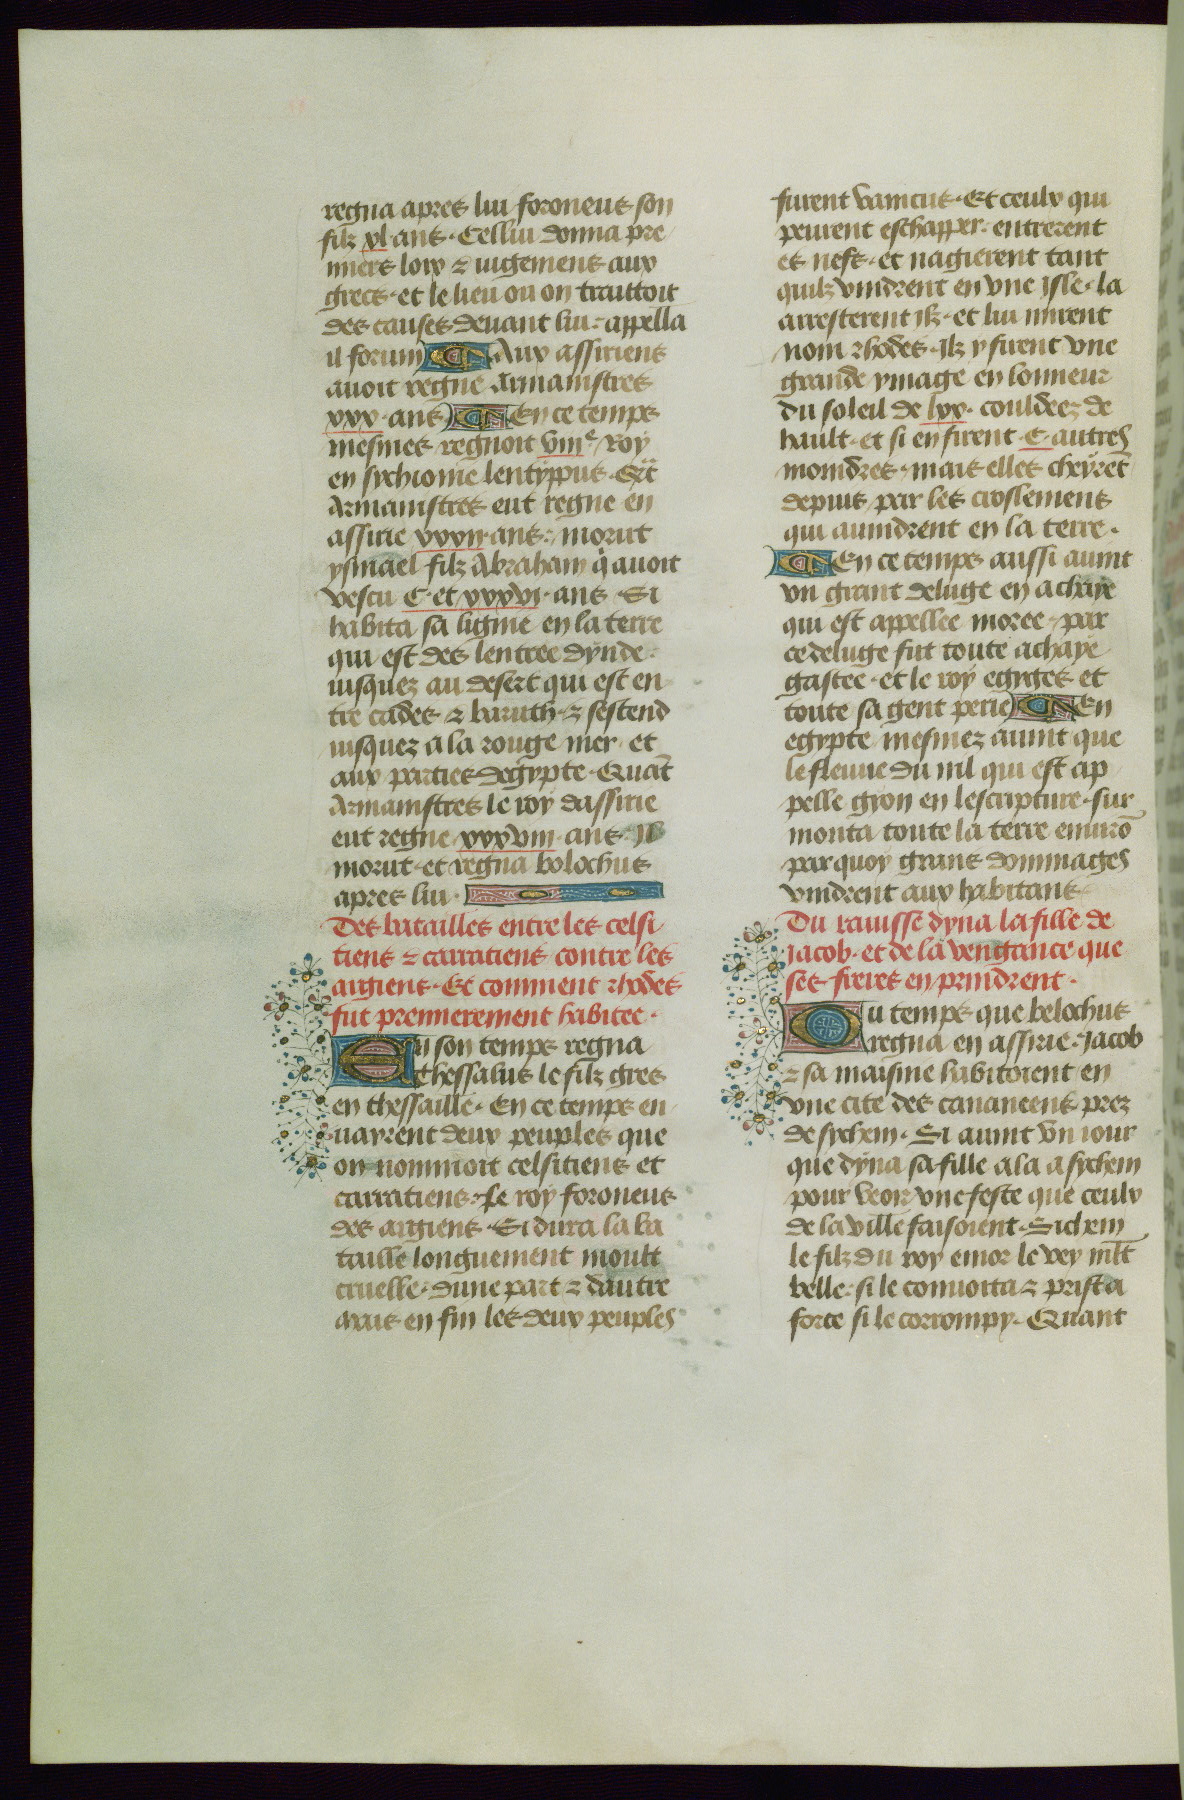 regna apres lui foroneus son
filz xl. ans. Cellui donna pre
miers loix ⁊ iugemens aux
grecs. et le lieu ou on traittoit
des causes deuant lui. appella
il forum Aux assiriens
auoit regne Armamistres
xxx. ans En ce temps
mesmes regnoit viiie. roy
en sychionie lentyppus. Qūt
Armamistres eut regne en
assirie xxxii. ans. morut
ysmael filz Abraham q̇ auoit
vescu C. et xxxvi. ans. Si
habita sa lignie en la terre
qui est des lentree dynde.
iusquez au desert qui est en
tre cades ⁊ baruth. ⁊ sestend
iusquez a la rouge mer. et
aux parties degypte. Quāt
Armamistres le roy dassirie
eut regne xxxviii. ans. Il
morut. et regna bolochus
apres lui.
Des batailles entre les celsi
tiens ⁊ carratiens contre les
argiens. Et comment rhodes
fut premierement habitee.
En son temps regna
thessalus le filz gres
en thessaille. En ce temps en
uayrent deux peuples que
on nommoit celsitiens et
carratiens. Le roy foroneus
des argiens. Si dura la ba
taille longuement moult
cruelle. dune part ⁊ dautre
Mais en fin les deux peuples
furent vaincus. Et ceulx qui
peurent eschapper. entrerent
es nefs. et nagierent tant
quilz vindrent en vne isle. la
arresterent ilz. et lui mirent
nom rhodes. Ilz y firent vne
grande ymage en lonneur
du soleil de lxx. couldeez de
hault. et si en firent. C. autres
moindres. mais elles cheyrēt
depuis par les croslemens
qui auindrent en la terre.
En ce temps aussi auint
vn grant deluge en achaye
qui est appellee moree. par
ce deluge fut toute achaye
gastee. et le roy egyges et
toute sa gent perie En
egypte mesmez auint que
le fleuue du nil qui est ap
pelle gyon en lescripture. sur
monta toute la terre enuirō
par quoy grans dommages
vindrent aux habitans.
Du rauisse dyna la fille de
Jacob. et de la vengance que
ses freres en prindrent.
Du temps que belochus
regna en assirie. Jacob
⁊ sa maisnie habitoient en
vne cite des cananeens prez
de sychem. Si auint vn iour
que dyna sa fille ala a sychem
pour veoir vne feste que ceulx
de la ville faisoient. Sichem
le filz du roy emor le vey mlt̄
belle. si le conuoita ⁊ prist a
force si le corrompy. Quant